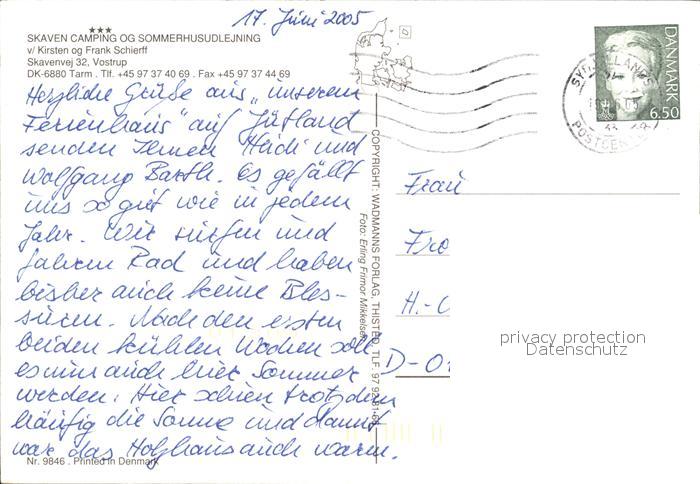 17. Juni 2005
SKAVEN CAMPING OG SOMMERHUSUDLEJNING
v/ Kirsten og Frank Schierff
Skavenvej 32, Vostrup
DK-6880 Tarm . Tlf. +45 97 37 40 69 . Fax +45 97 37 44 69
Herzliche Grüße aus „unserem
Ferienhaus" auf Jütland
senden Ihnen Heidi und
Wolfgang Barth. Es gefällt
uns so gut wie in jedem
Jahr. Wir surfen und
fahren Rad und haben
bisher auch keine Bles-
suren. Nach den ersten
beiden kühlen Wochen soll
es nun auch hier Sommer
werden. Hier schien trotzdem
häufig die Sonne und dann
war das Holzhaus auch warm.
Nr. 9846 . Printed in Denmark
COPYRIGHT: WADMANNS FORLAG, THISTED, TLF. 97 92
Foto: Erling Frimor Mikkelsen
DANMARK
6.50
POSTCENTER
Frau
Fro
H.-
D-O
privacy protection
Datenschutz